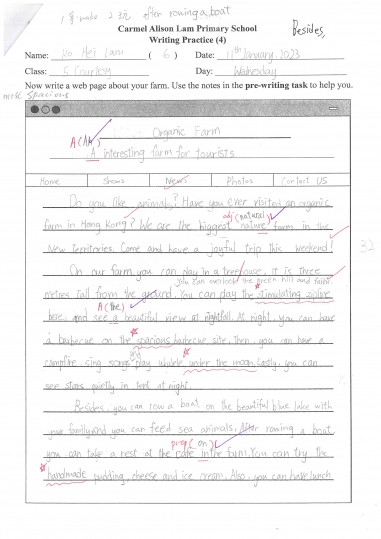 after rowing a boat
Besides,
Carmel Alison Lam Primary School
Writing Practice (4)
Name: Ho Hei Lam ( 6 ) Date: 11th January, 2023
Class: 5 Day: Wednesday
Now write a web page about your farm. Use the notes in the pre-writing task to help you.
more spacious
Organic Farm
A (An)
A interesting farm for tourists
Home Shows News Photos Contact US
Do you like animals? Have you ever visited an organic
adj (natural)
farm in Hong Kong? We are the biggest nature farm in the
New Territories. Come and have a joyful trip this weekend!
32
On our farm, you can play in a tree house. It is three
You can overlook the green hill and farm.
metres tall from the ground. You can play the stimulating zipline
A (the)
here, and see a beautiful view at nightfall. At night, you can have
a barbecue on the spacious barbecue site. Then, you can have a
and
campfire, sing songs play ukulele under the moon. Lastly, you can
see stars quietly in tent at night.
Besides, you can row a boat on the beautiful blue lake with
your family and you can feed sea animals. After rowing a boat,
prep (on)
you can take a rest at the cafe in the farm. You can try the
handmade pudding, cheese and ice cream. Also, you can have lunch